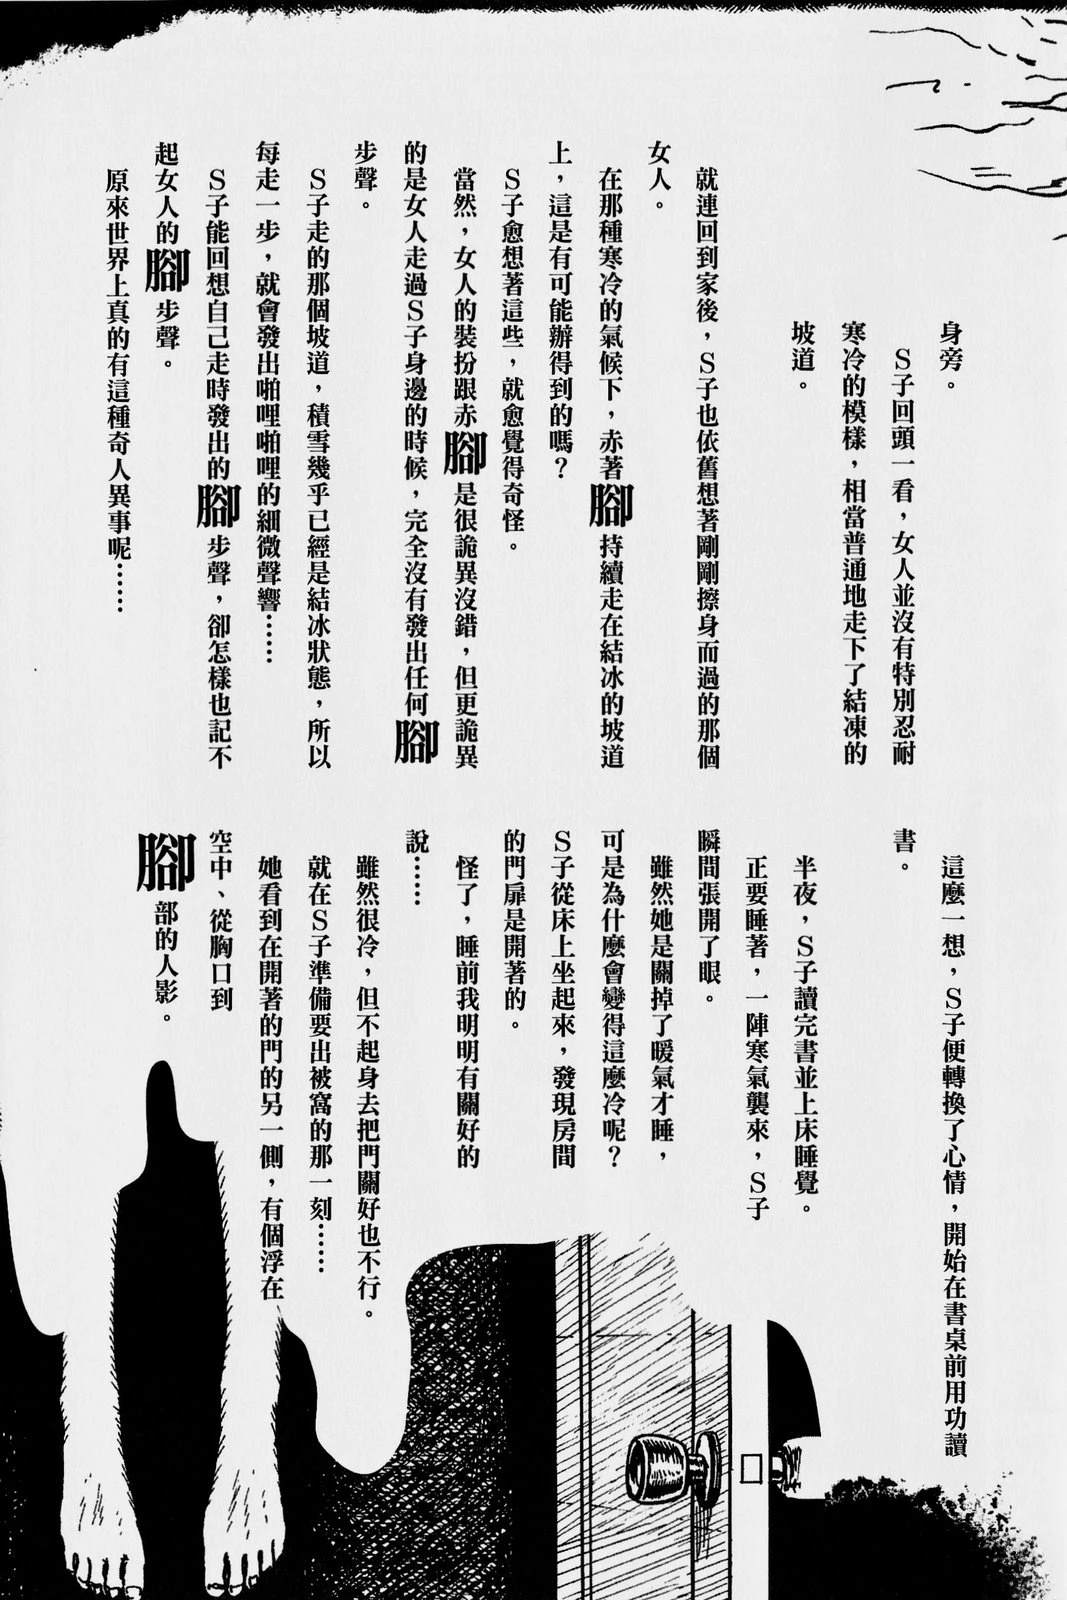 身旁。
S子回頭一看，女人並沒有特別忍耐
寒冷的模樣，相當普通地走下了結凍的
坡道。
就連回到家後，S子也依舊想著剛剛擦身而過的那個
女人。
在那種寒冷的氣候下，赤著腳持續走在結冰的坡道
上，這是有可能辦得到的嗎？
S子愈想著這些，就愈覺得奇怪。
當然，女人的裝扮跟赤腳是很詭異沒錯，但更詭異
的是女人走過S子身邊的時候，完全沒有發出任何腳
步聲。
S子走的那個坡道，積雪幾乎已經是結冰狀態，所以
每走一步，就會發出啪哩啪哩的細微聲響……
S子能回想自己走時發出的腳步聲，卻怎樣也記不
起女人的腳步聲。
原來世界上真的有這種奇人異事呢……
這麼一想，S子便轉換了心情，開始在書桌前用功讀
書。
半夜，S子讀完書並上床睡覺。
正要睡著，一陣寒氣襲來，S子
瞬間張開了眼。
雖然她是關掉了暖氣才睡，
可是為什麼會變得這麼冷呢？
S子從床上坐起來，發現房間
的門扉是開著的。
怪了，睡前我明明有關好的
說……
雖然很冷，但不起身去把門關好也不行。
就在S子準備要出被窩的那一刻……
她看到在開著的門的另一側，有個浮在
空中、從胸口到
腳部的人影。